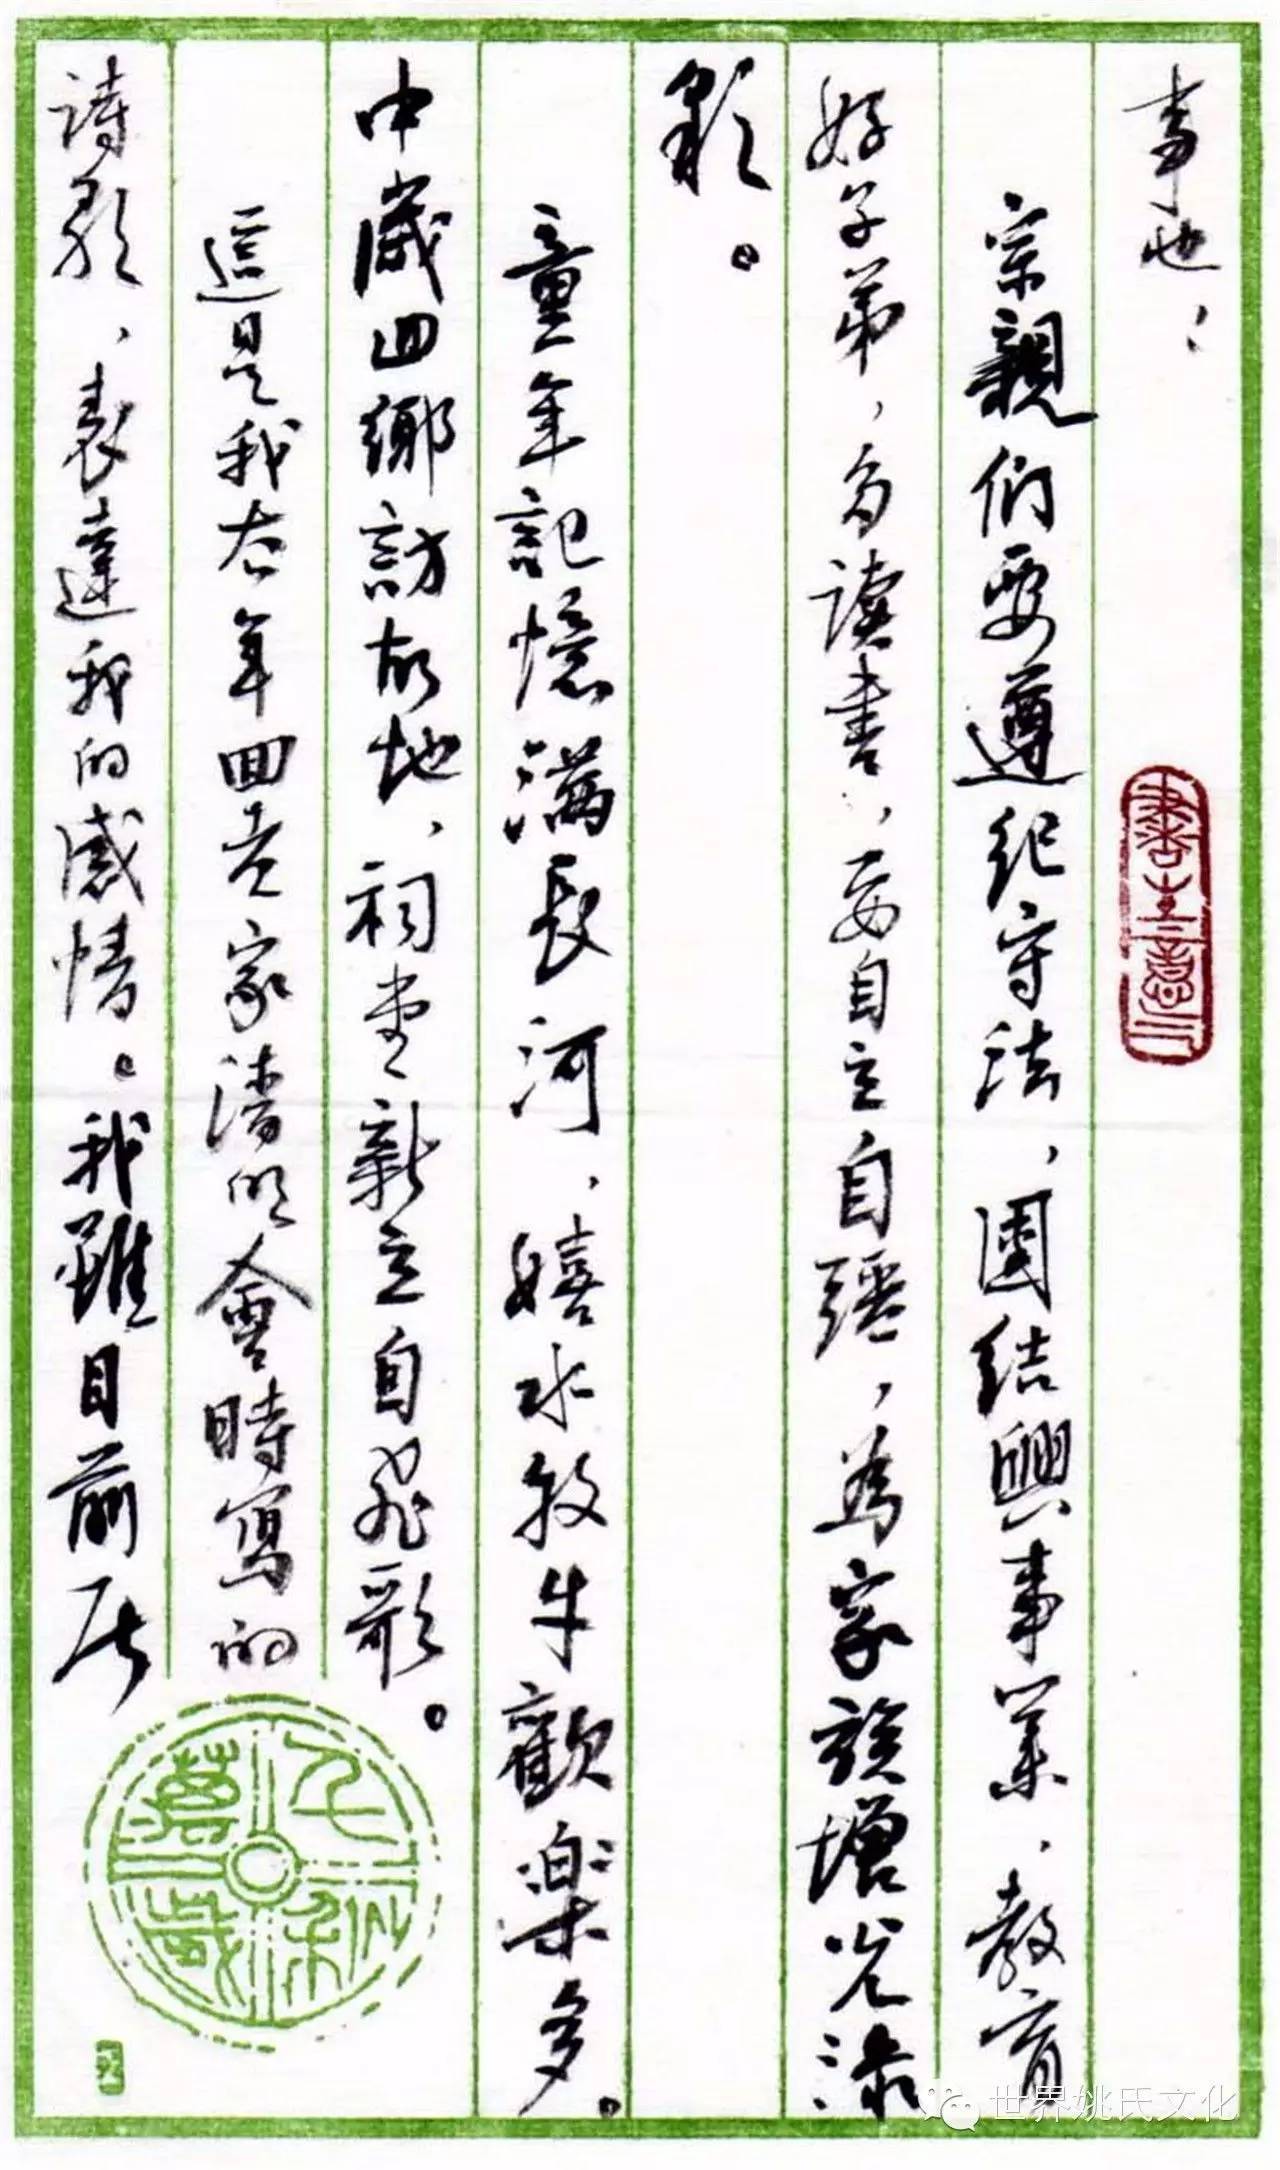 事也；
宗親们要遵纪守法、團结興事業、教育
好子弟，多读書、要自立自强，為家族增光添
彩。
童年記憶满長河，嬉水牧牛歡樂多。
中歲回鄉訪故地，祠堂新立自飛歌。
這是我去年回老家清明會時寫的
詩歌，表達我的感情。我雖目前居
書生意
千秋萬歲
世界姚氏文化